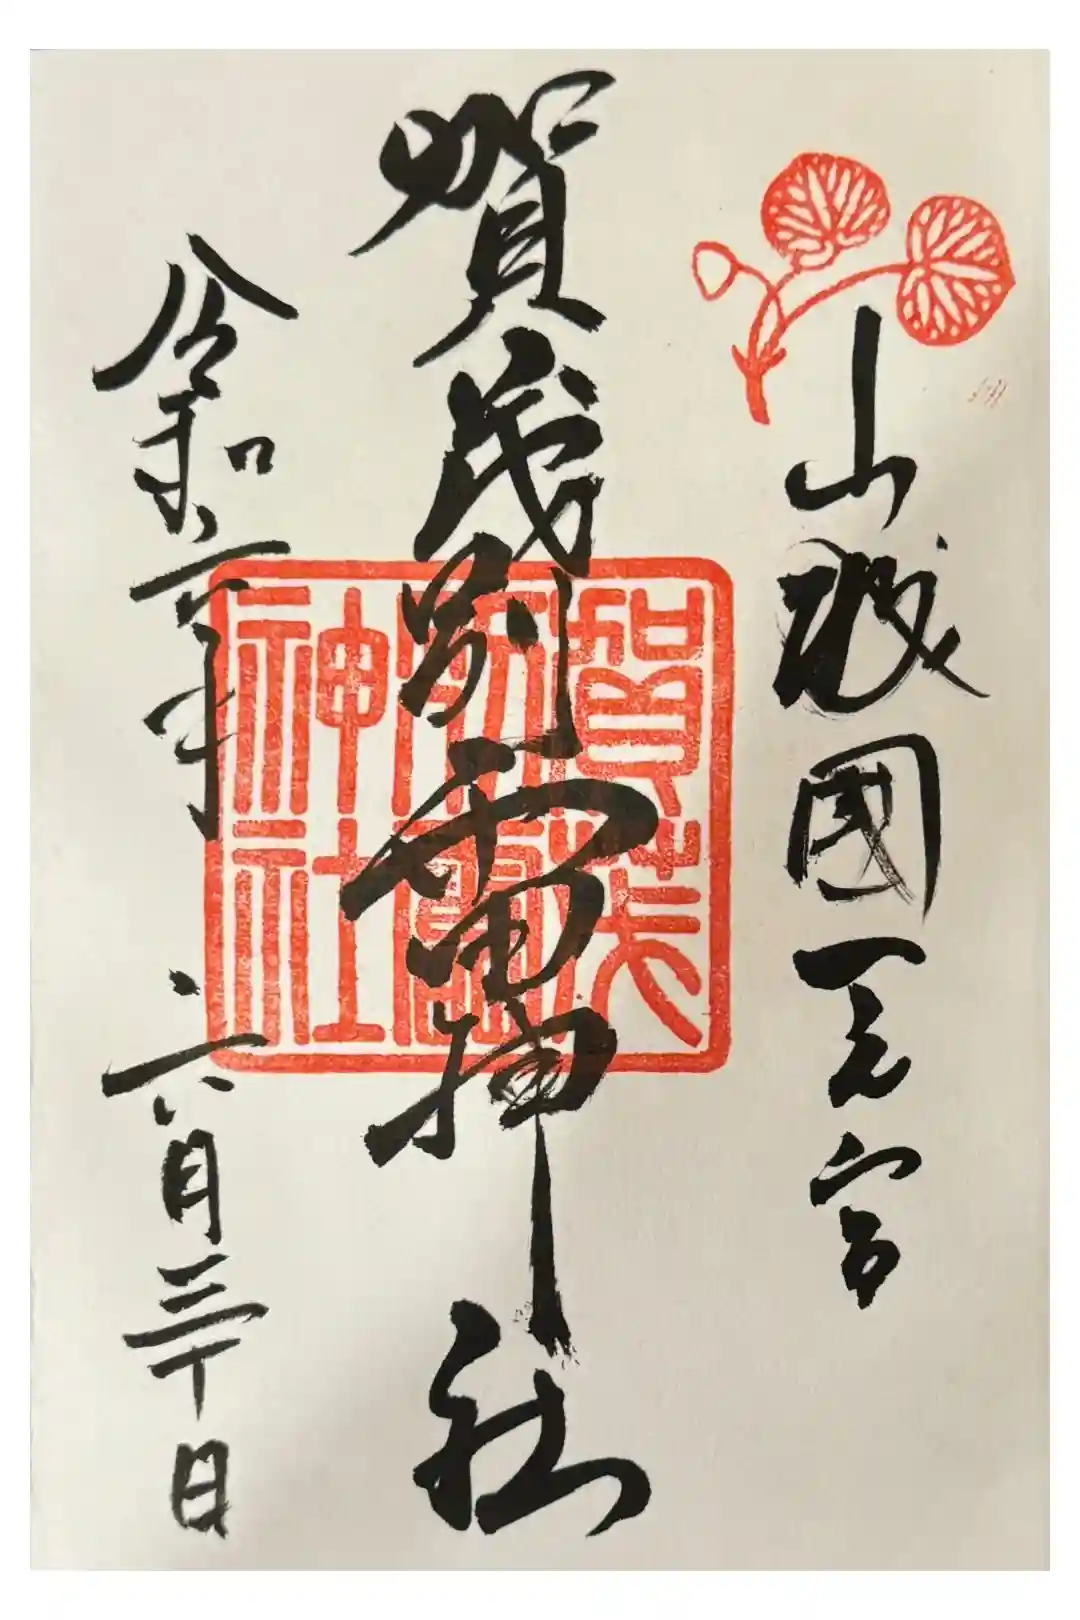 山城國一之宮
賀茂別雷神社
令和六年 六月三十日
賀茂
神社